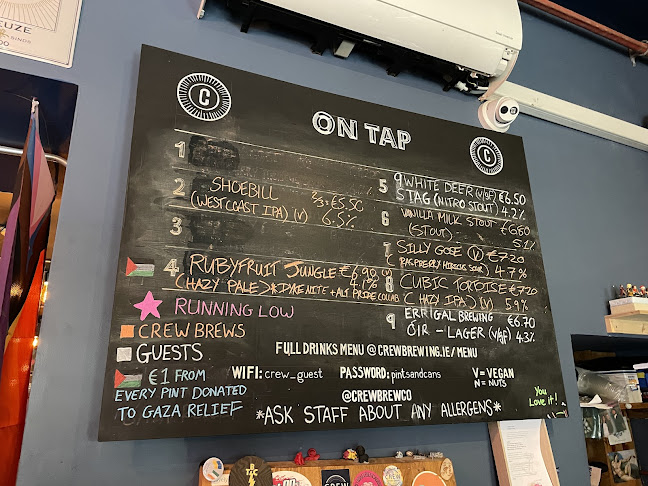 EUZE
C
ON TAP
C
1
2 SHOEBILL 2/3=€5.50
(WEST COAST IPA) (V) 6.5%
3
4 RUBYFRUIT JUNGLE €6.90 (V)
(HAZY PALE) *DYKE NITE + ALT PRIDE COLLAB 4.1%
5 9 WHITE DEER (V/GF) €6.50
STAG (NITRO STOUT) 4.2%
6 VANILLA MILK STOUT €6.50
(STOUT) 5.1%
7 SILLY GOSE (V) €7.20
(RASPBERRY HIBISCUS SOUR) 4.7%
8 CUBIC TORTOISE €7.20
(HAZY IPA) (V) 5.9%
9 ERRIGAL BREWING €6.70
ÓIR - LAGER (V/GF) 4.3%
RUNNING LOW
CREW BREWS
GUESTS
€1 FROM
EVERY PINT DONATED
TO GAZA RELIEF
FULL DRINKS MENU @ CREWBREWING.IE/MENU
WIFI: crew_guest PASSWORD: pintsandcans
@CREWBREWCO
V = VEGAN
N = NUTS
*ASK STAFF ABOUT ANY ALLERGENS*
You
Love it!
CREW